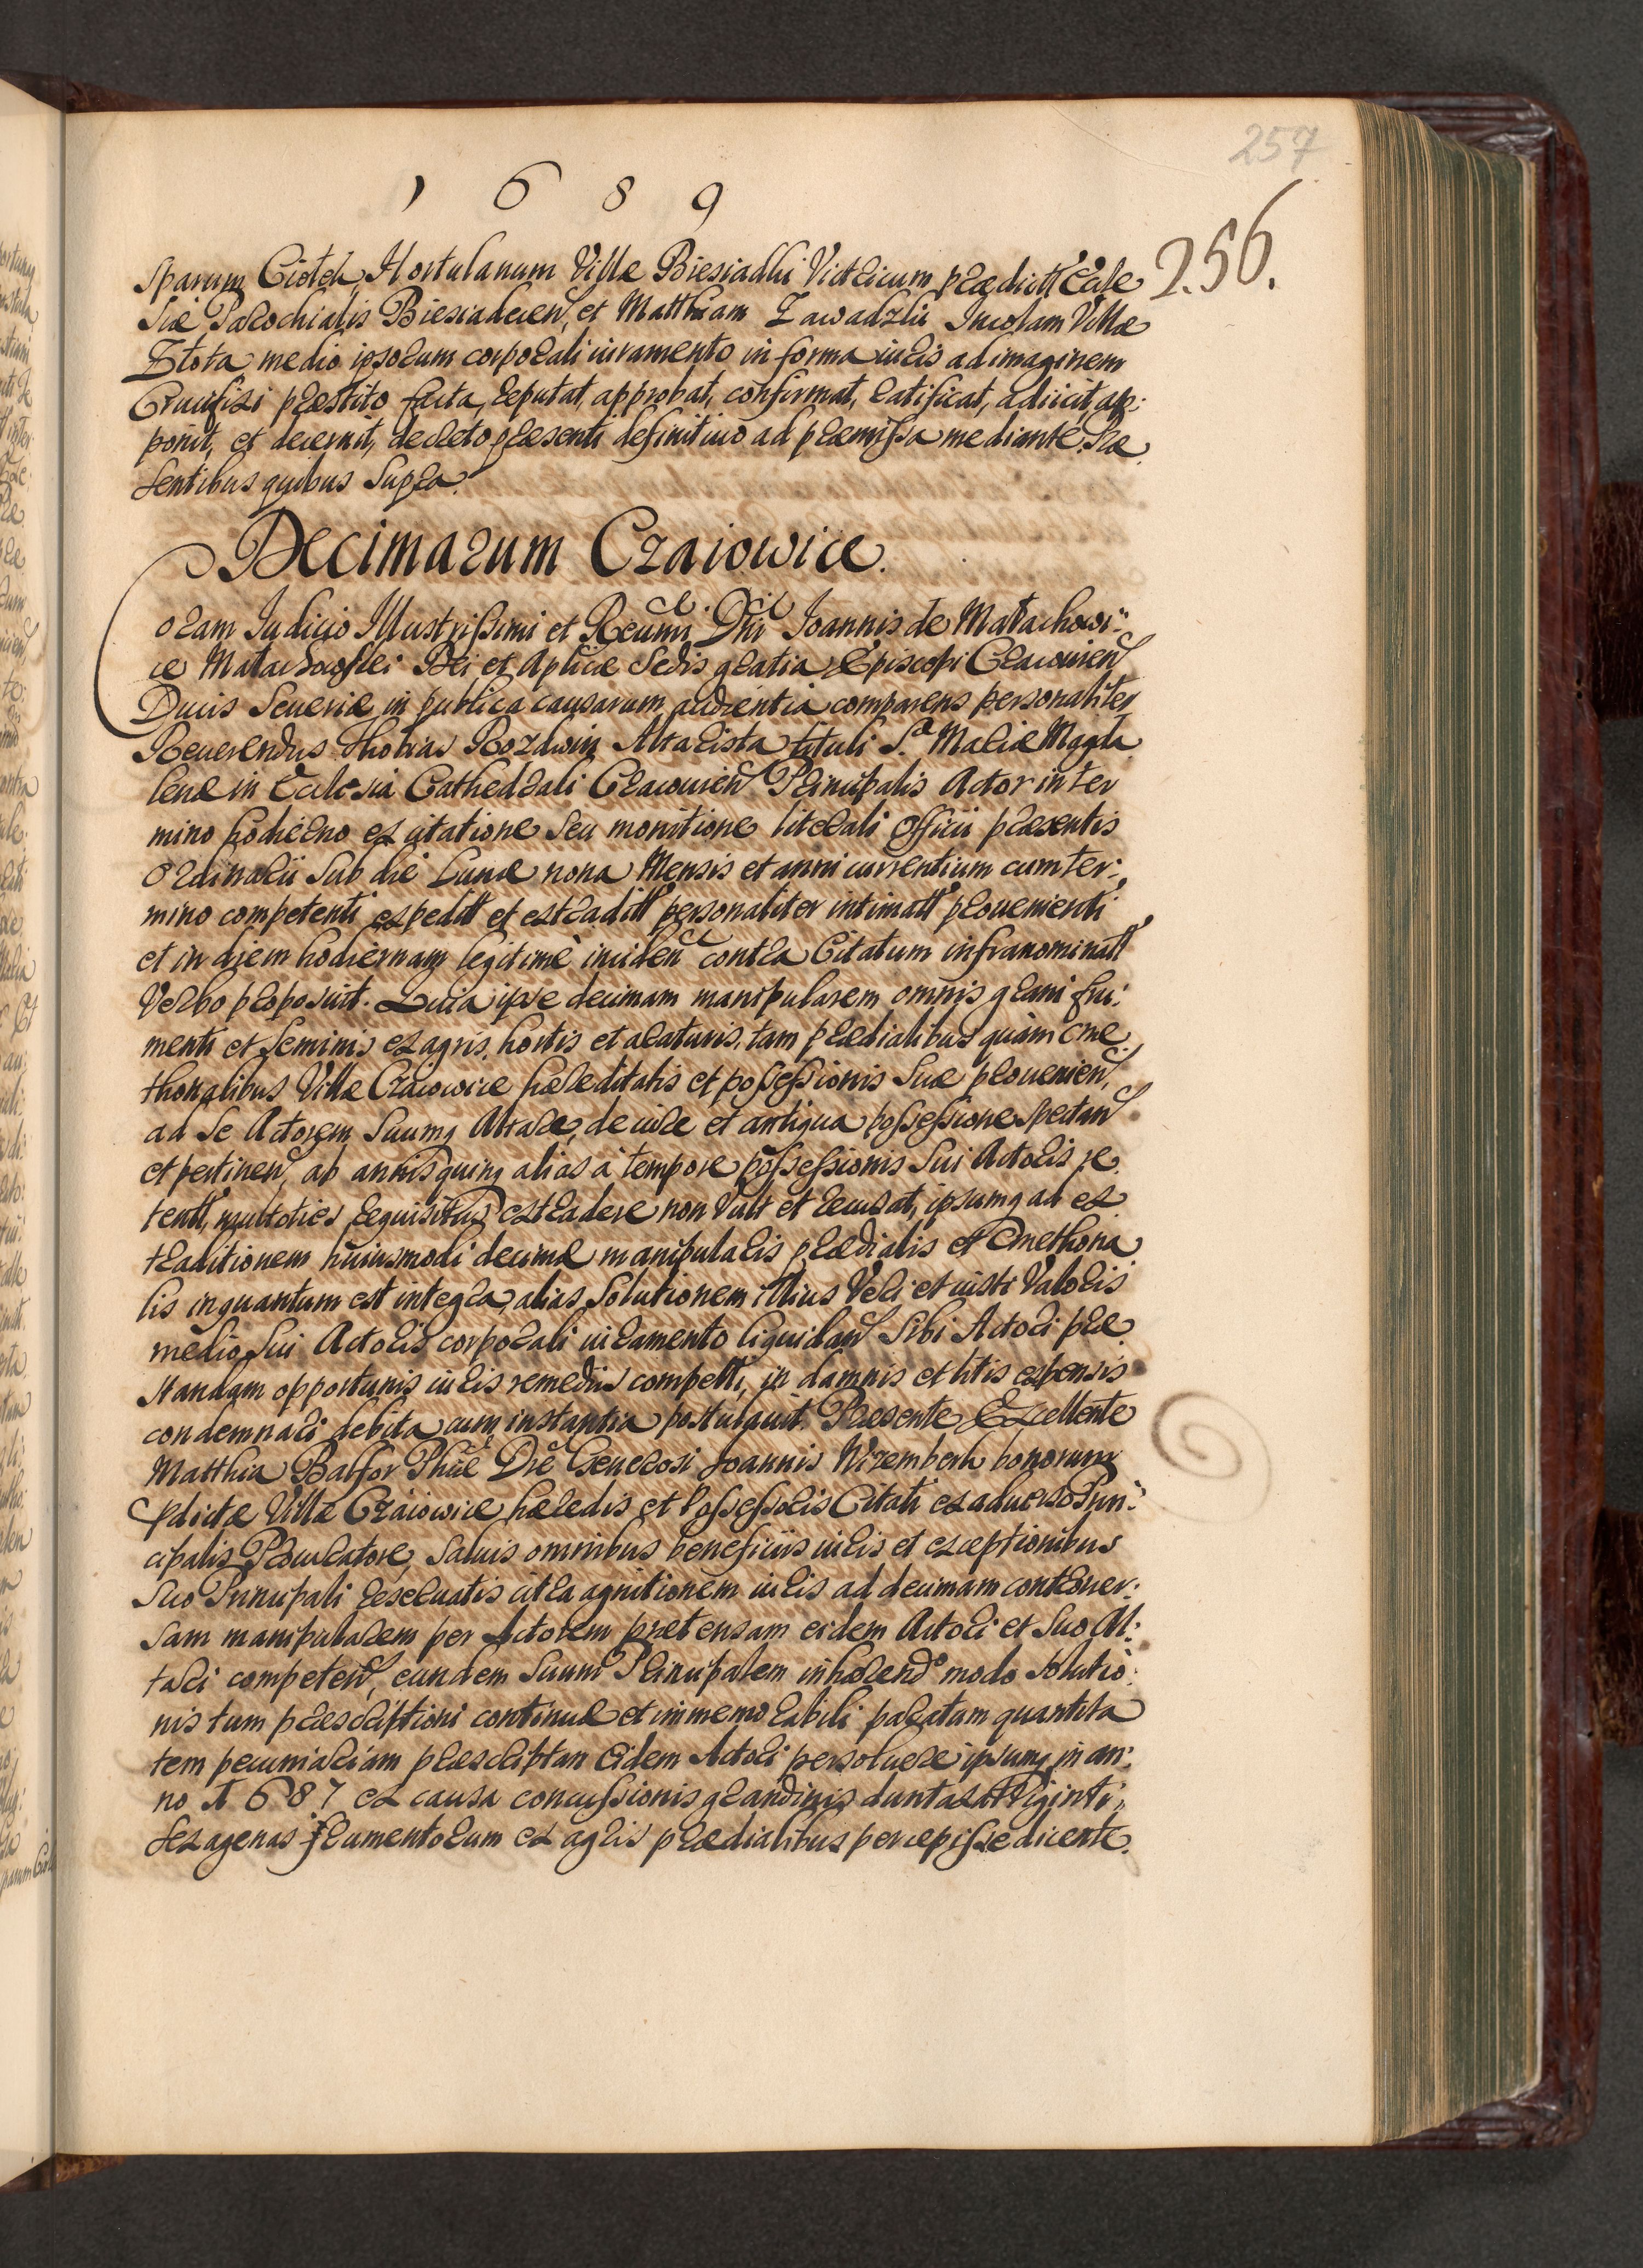 257
1 6 8 9
256.
sparum Ciołek, Hortulanum Villæ Biesiadki Victricum prædictt Eccle
siæ Parochialis Biesiadecen, et Matthiam Zawadzki Incolam Villæ
Złota medio ipsorum corporali iuramento in forma iuris ad imaginem
Crucifixi præstito facta, reputat, approbat, confirmat, ratificat, adiicit, ap:
ponit, et decernit, decreto præsenti definitiuo ad præmissa mediante. Præ
sentibus quibus supra.
Decimarum Czaiowice.
Coram Iudicio Illustrissimi et Reuml. Dni Ioannis de Małachowi:
ce Małachowski Dei et Aplicæ Sedis gratia Episcopi Cracouien
Ducis Seueriæ in publica causarum audientia comparens personaliter
Reuerendus Thobias Rozdwin Altarista tituli S.a Mariæ Magda
lenæ in Ecclesia Cathedrali Cracouien Principalis Actor in ter
mino hodierno ex citatione seu monitione literali Officii præsentis
Ordinarii sub die Lunæ nona Mensis et anni currentium cum ter:
mino competenti expeditt et extraditt personaliter intimatt prouenienti
et in diem hodiernam legitimè inciden contra Citatum infranominatt
Verbo proposuit. Quia ipse decimam manipularem omnis grani fru:
menti et seminis ex agris, hortis et araturis, tam prædialibus quàm cme
thonalibus Villæ Czaiowice hæreditatis et possessionis suæ prouenien,
ad se Actorem suumq Altare, de iure et antiqua possessione spectan
et pertinen, ab annis quinq alias à tempore possessionis sui Actoris re
tentt, multoties requisitus extradere non vult et recusat, ipsumq ad ex
traditionem huiusmodi decimæ manipularis prædialis et Cmethona
lis inquantum est integra, alias solutionem illius veri et iusti valoris
medio sui Actoris corporali iuramento liquidan sibi Actori præ
standam opportunis iuris remediis compelli, in damnis et litis expensis
condemnari debita cum instantia postulauit. Præsente Excellente
Matthia Balfor Phiæ Dre Generosi Joannis Wirembech bonorum
pdictæ Villæ Czaiowice hæredis et Possessoris Citati ex aduerso Prin:
cipalis Procuratore, saluis omnibus beneficiis iuris et exceptionibus
suo Principali reseruatis citra agnitionem iuris ad decimam controuer:
sam manipularem per Actorem prætensam eidem Actori et suo Al:
tari competen, eundem suum Principalem inhærendo modo solutio:
nis tum præscriptioni continuæ et immemorabili paratum quantita
tem pecuniariam præscriptam eidem Actori persoluere ipsumq in an:
no 1687 ex causa concussionis grandinis duntaxat Viginti
sexagenas frumentorum ex agris prædialibus percepisse dicente.